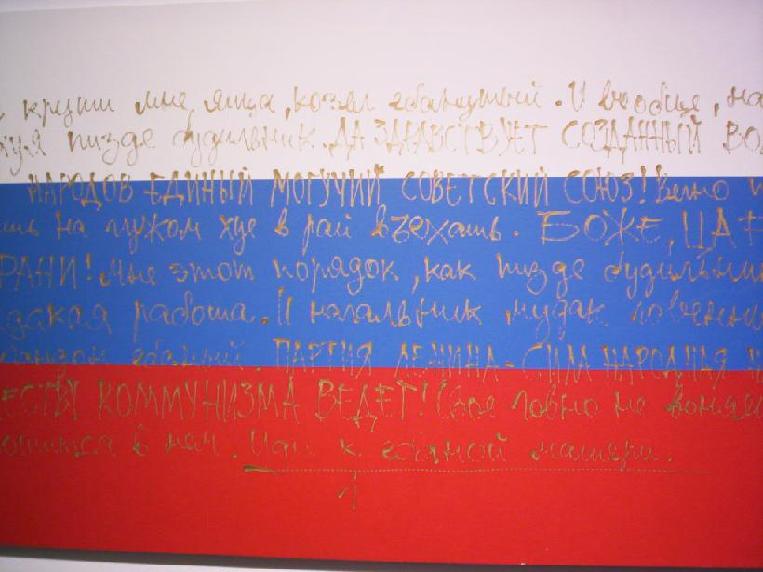 круши мне яйца, козёл ебанутый. И вообще, на
хуя пизде будильник. ДА ЗДРАВСТВУЕТ СОЗДАННЫЙ ВО
НАРОДОВ ЕДИНЫЙ МОГУЧИЙ СОВЕТСКИЙ СОЮЗ!
на чужом хуе в рай въехать. БОЖЕ, ЦАР
РАНИ! Мне этот порядок, как пизде будильни
работа. И начальник мудак говённы
ебаный. ПАРТИЯ ЛЕНИНА - СИЛА НАРОДНАЯ Н
ЕСТВУ КОММУНИЗМА ВЕДЕТ! Своё говно не воняе
в нем. Иди к ебаной матери.